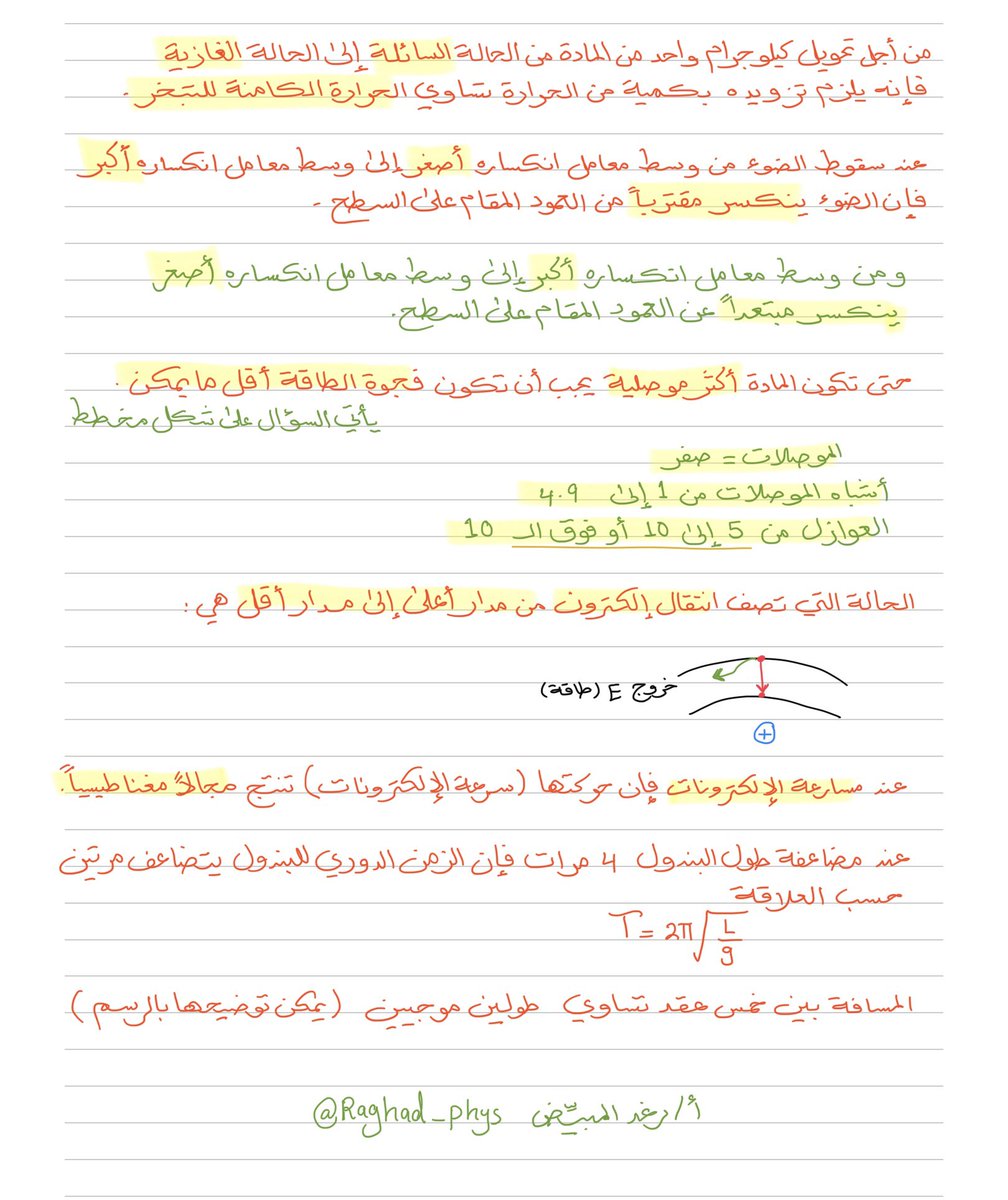 من أجل تحويل كيلوجرام واحد من المادة من الحالة السائلة إلى الحالة الغازية
فإنه يلزم تزويده بكمية من الحرارة تساوي الحرارة الكامنة للتبخر .
عند سقوط الضوء من وسط معامل انكساره أصغر إلى وسط معامل انكساره أكبر
فإن الضوء ينكسر مقترباً من العمود المقام على السطح .
ومن وسط معامل انكساره أكبر إلى وسط معامل انكساره أصغر
ينكسر مبتعداً عن العمود المقام على السطح .
حتى تكون المادة أكثر موصلية يجب أن تكون فجوة الطاقة أقل ما يمكن .
يأتي السؤال على شكل مخطط
الموصلات = صفر
أشباه الموصلات من 1 إلى 4.9
العوازل من 5 إلى 10 أو فوق الـ 10
الحالة التي تصف انتقال إلكترون من مدار أعلى إلى مدار أقل هي :
خروج E (طاقة)
+
عند مسارعة الإلكترونات فإن حركتها (سرعة الإلكترونات) تنتج مجالاً مغناطيسياً .
عند مضاعفة طول البندول 4 مرات فإن الزمن الدوري للبندول يتضاعف مرتين
حسب العلاقة
T = 2π√(L/g)
المسافة بين خمس عقد تساوي طولين موجيين (يمكن توضيحها بالرسم)
أ/رغد المبيّض @Raghad_phys